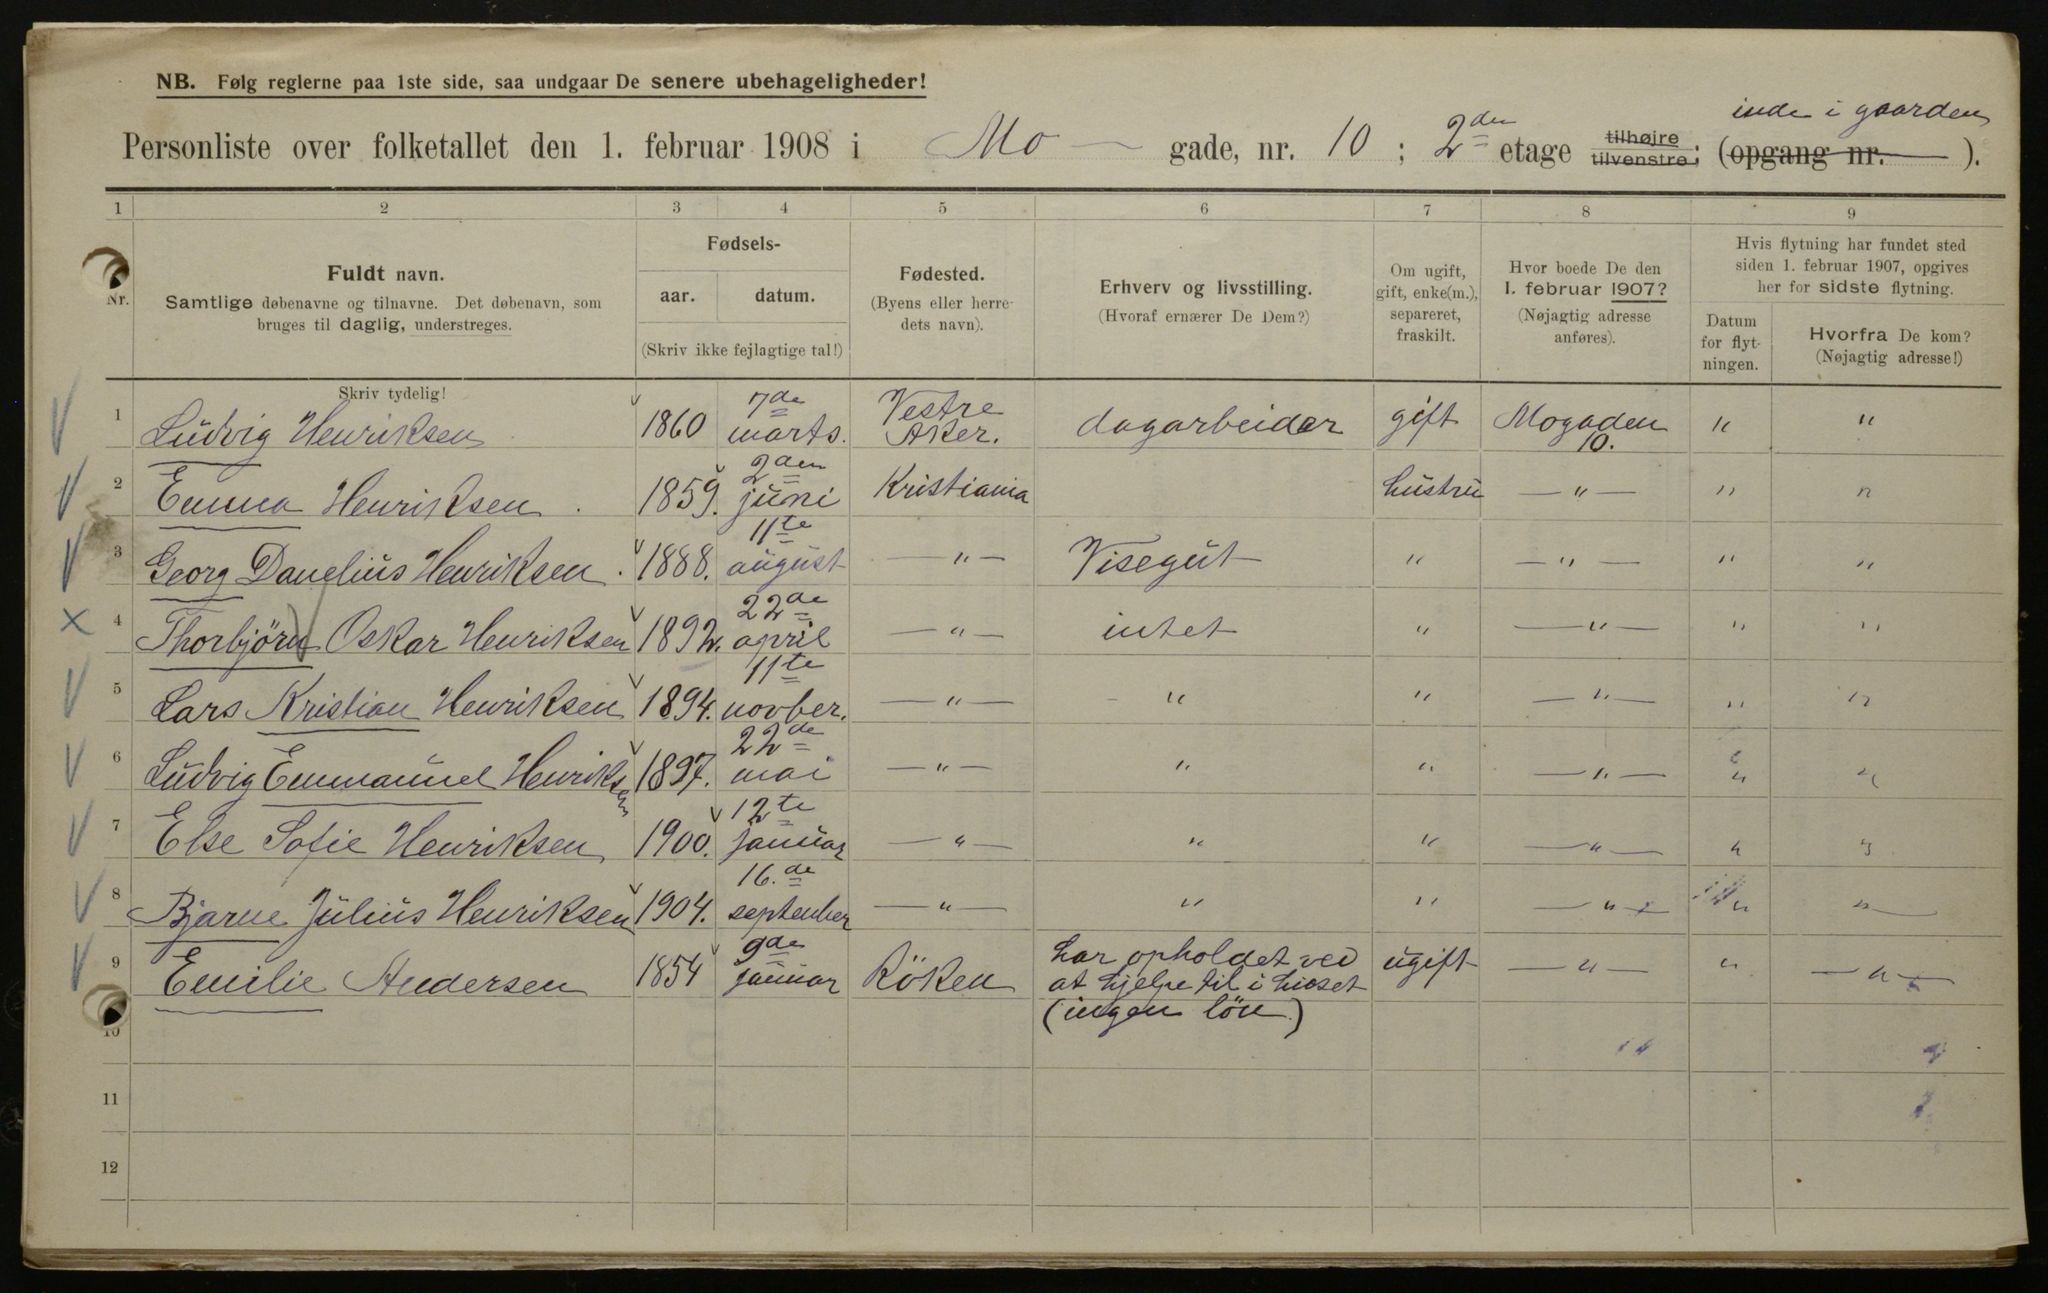 NB. Følg reglerne paa 1ste side, saa undgaar De senere ubehageligheder!
inde i gaarden
Personliste over folketallet den 1. februar 1908 i Mo gade, nr. 10 ; 2den etage tilhøjre tilvenstre; (opgang nr. ).
1 2 3 4 5 6 7 8 9
Nr.
Fuldt navn.
Samtlige døbenavne og tilnavne. Det døbenavn, som
bruges til daglig, understreges.
Skriv tydelig!
Fødsels-
aar. datum.
(Skriv ikke fejlagtige tal!)
Fødested.
(Byens eller herre-
dets navn).
Erhverv og livsstilling.
(Hvoraf ernærer De Dem?)
Om ugift,
gift, enke(m.),
separeret,
fraskilt.
Hvor boede De den
1. februar 1907?
(Nøjagtig adresse
anføres).
Hvis flytning har fundet sted
siden 1. februar 1907, opgives
her for sidste flytning.
Datum
for flyt-
ningen.
Hvorfra De kom?
(Nøjagtig adresse!)
1 Ludvig Henriksen 1860 7de marts. Vestre Aker. dagarbeider gift Mogaden 10. " "
2 Emma Henriksen 1859. 2den juni Kristiania hustru — " — " "
3 Georg Danelius Henriksen. 1888. 11te august — " — Visegut " — " — " "
4 Thorbjörn Oskar Henriksen 1892. 22de april — " — intet " — " — " "
5 Lars Kristian Henriksen 1894. 11te novber. — " — " " — " — " "
6 Ludvig Emmanuel Henriksen 1897. 22de mai — " — " " — " — " "
7 Else Sofie Henriksen 1900. 12te januar — " — " " — " — " "
8 Bjarne Julius Henriksen 1904. 16.de september — " — " " — " — " "
9 Emilie Andersen 1854 9de januar Röken har opholdet ved ugift — " — " — " —
at hjelpe til i huset
(ingen lön.)
10
11
12